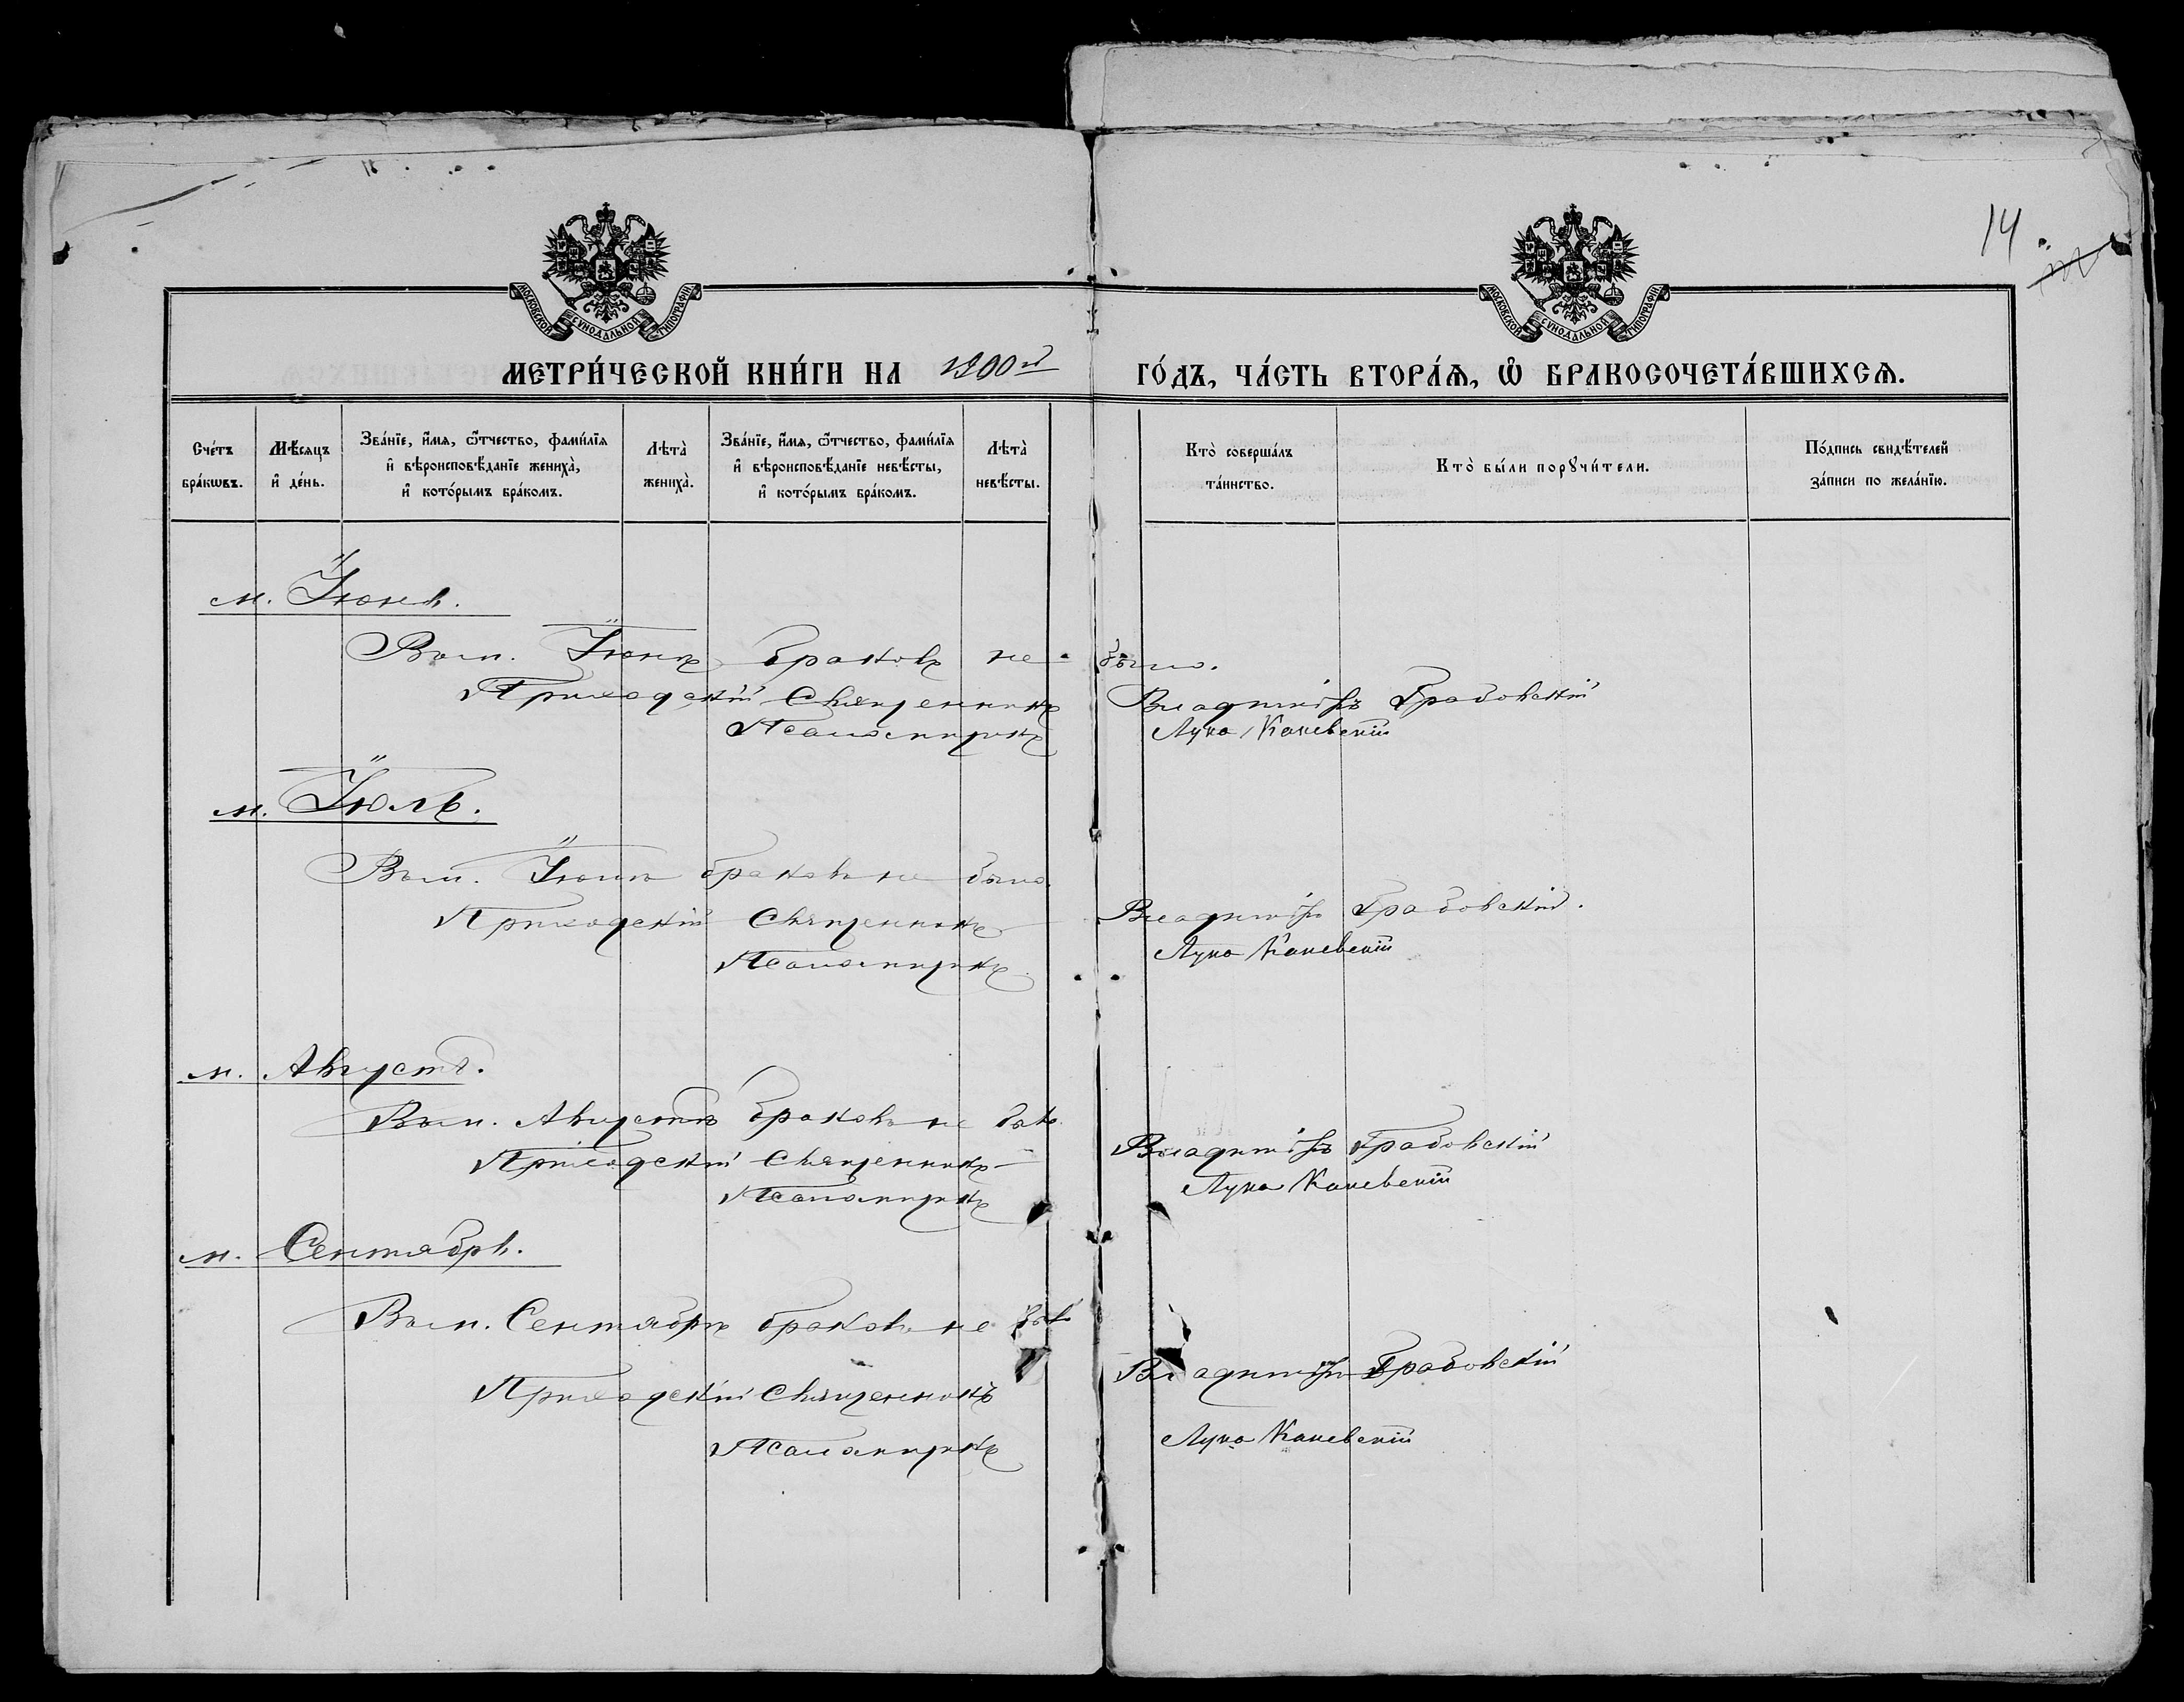 14
МОСКОВСКОЙ СУНОДАЛЬНОЙ ТИПОГРАФІИ
МОСКОВСКОЙ СУНОДАЛЬНОЙ ТИПОГРАФІИ
МЕТРИ́ЧЕСКОЙ КНИ́ГИ НА 1900й ГО́ДЪ, ЧА́СТЬ ВТОРА́Ѧ, Ѽ БРАКОСОЧЕТА́ВШИХСѦ.
Сче́тъ
бра́кѡвъ.
Мѣ́сяцъ
и҆ де́нь.
Зва́нїе, и҆́мѧ, ѻ҆́тчество, фами́лїѧ
и҆ вѣроисповѣ́данїе жениха̀,
и҆ кото́рымъ бра́комъ.
Лѣта̀
жениха̀.
Зва́нїе, и҆́мѧ, ѻ҆́тчество, фами́лїѧ
и҆ вѣроисповѣ́данїе невѣ́сты,
и҆ кото́рымъ бра́комъ.
Лѣта̀
невѣ́сты.
Кто̀ соверша́лъ
та́инство.
Кто̀ бы́ли порꙋчи́тели.
По́дпись свидѣ́телей
за́писи по жела́нїю.
м. Іюнь.
Въ м. Іюнѣ браковъ не было.
Приходскій Священникъ Владиміръ Грабовскій
Псаломщикъ Лука Каневскій
м. Іюль.
Въ м. Іюлѣ браковъ не было.
Приходскій Священникъ Владиміръ Грабовскій.
Псаломщикъ Лука Каневскій
м. Августъ.
Въ м. Августѣ браковъ не было.
Приходскій Священникъ Владиміръ Грабовскій
Псаломщикъ Лука Каневскій
м. Сентябрь.
Въ м. Сентябрѣ браковъ не было
Приходскій Священникъ Владиміръ Грабовскій
Псаломщикъ Лука Каневскій